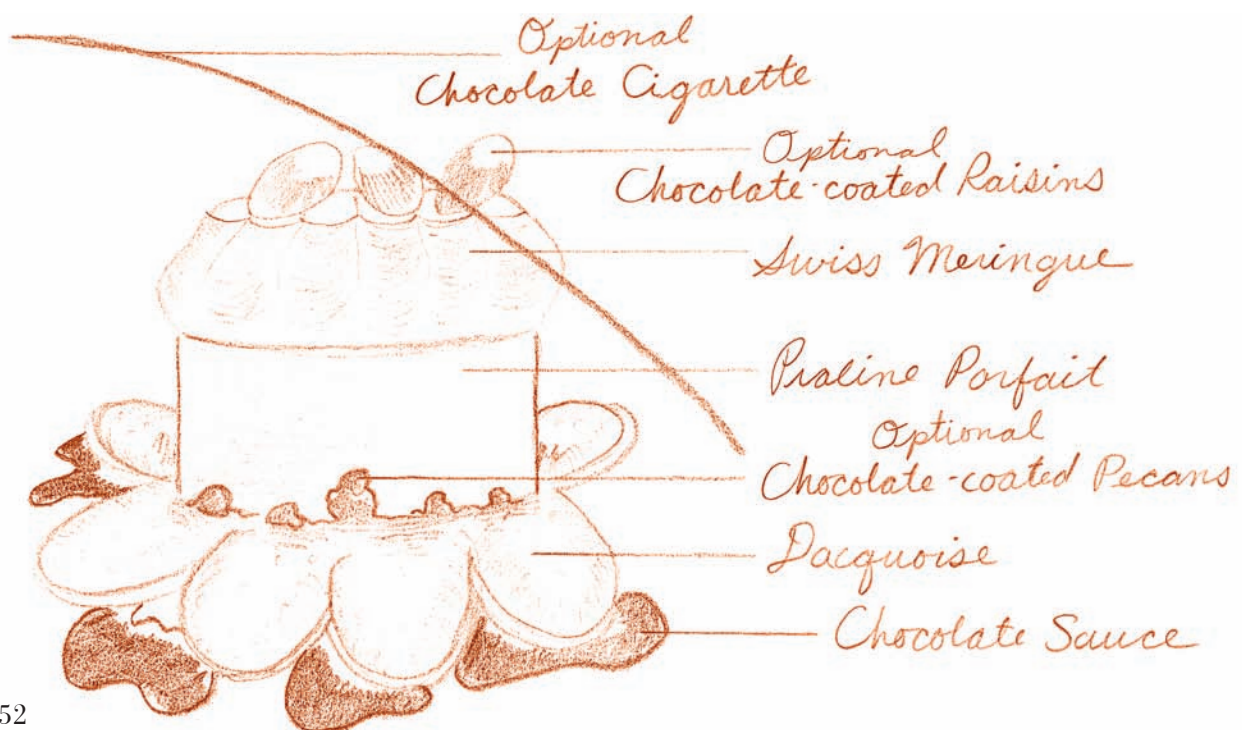 Optional
Chocolate Cigarette
Optional
Chocolate-coated Raisins
Swiss Meringue
Praline Parfait
Optional
Chocolate-coated Pecans
Dacquoise
Chocolate Sauce
52